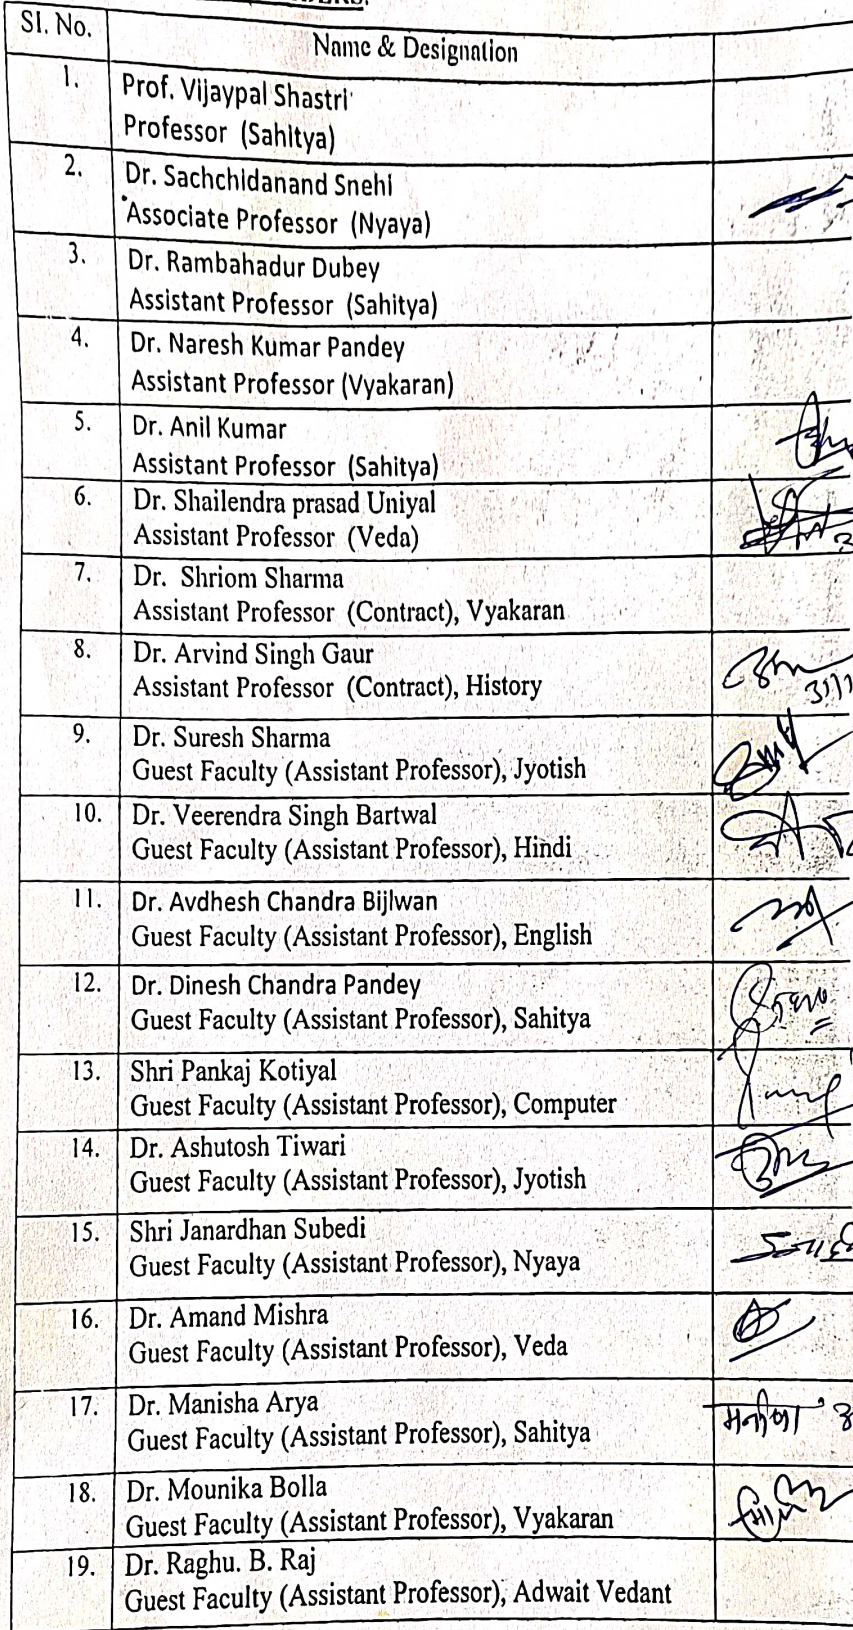 Sl. No.
Name & Designation
1.
Prof. Vijaypal Shastri
Professor (Sahitya)
2.
Dr. Sachchidanand Snehi
Associate Professor (Nyaya)
3.
Dr. Rambahadur Dubey
Assistant Professor (Sahitya)
4.
Dr. Naresh Kumar Pandey
Assistant Professor (Vyakaran)
5.
Dr. Anil Kumar
Assistant Professor (Sahitya)
6.
Dr. Shailendra prasad Uniyal
Assistant Professor (Veda)
7.
Dr. Shriom Sharma
Assistant Professor (Contract), Vyakaran
8.
Dr. Arvind Singh Gaur
Assistant Professor (Contract), History
9.
Dr. Suresh Sharma
Guest Faculty (Assistant Professor), Jyotish
10.
Dr. Veerendra Singh Bartwal
Guest Faculty (Assistant Professor), Hindi
11.
Dr. Avdhesh Chandra Bijlwan
Guest Faculty (Assistant Professor), English
12.
Dr. Dinesh Chandra Pandey
Guest Faculty (Assistant Professor), Sahitya
13.
Shri Pankaj Kotiyal
Guest Faculty (Assistant Professor), Computer
14.
Dr. Ashutosh Tiwari
Guest Faculty (Assistant Professor), Jyotish
15.
Shri Janardhan Subedi
Guest Faculty (Assistant Professor), Nyaya
16.
Dr. Amand Mishra
Guest Faculty (Assistant Professor), Veda
17.
Dr. Manisha Arya
Guest Faculty (Assistant Professor), Sahitya
मनीषा
18.
Dr. Mounika Bolla
Guest Faculty (Assistant Professor), Vyakaran
19.
Dr. Raghu. B. Raj
Guest Faculty (Assistant Professor), Adwait Vedant